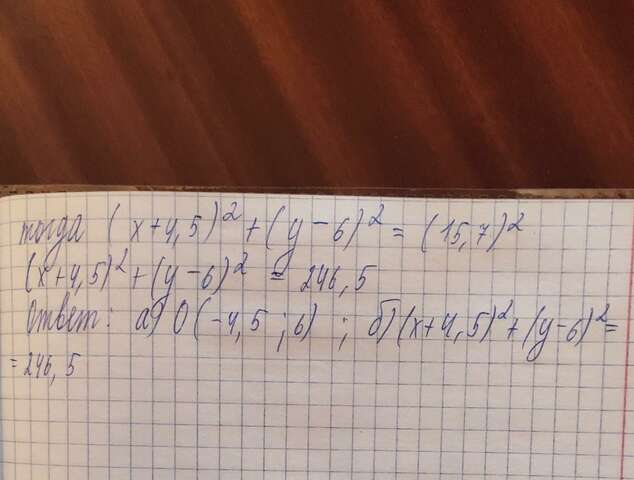 тогда (x+4,5)²+(y-6)² = (15,7)²
(x+4,5)²+(y-6)² = 246,5
Ответ: а) O(-4,5 ; 6) ; б) (x+4,5)²+(y-6)²=
= 246,5